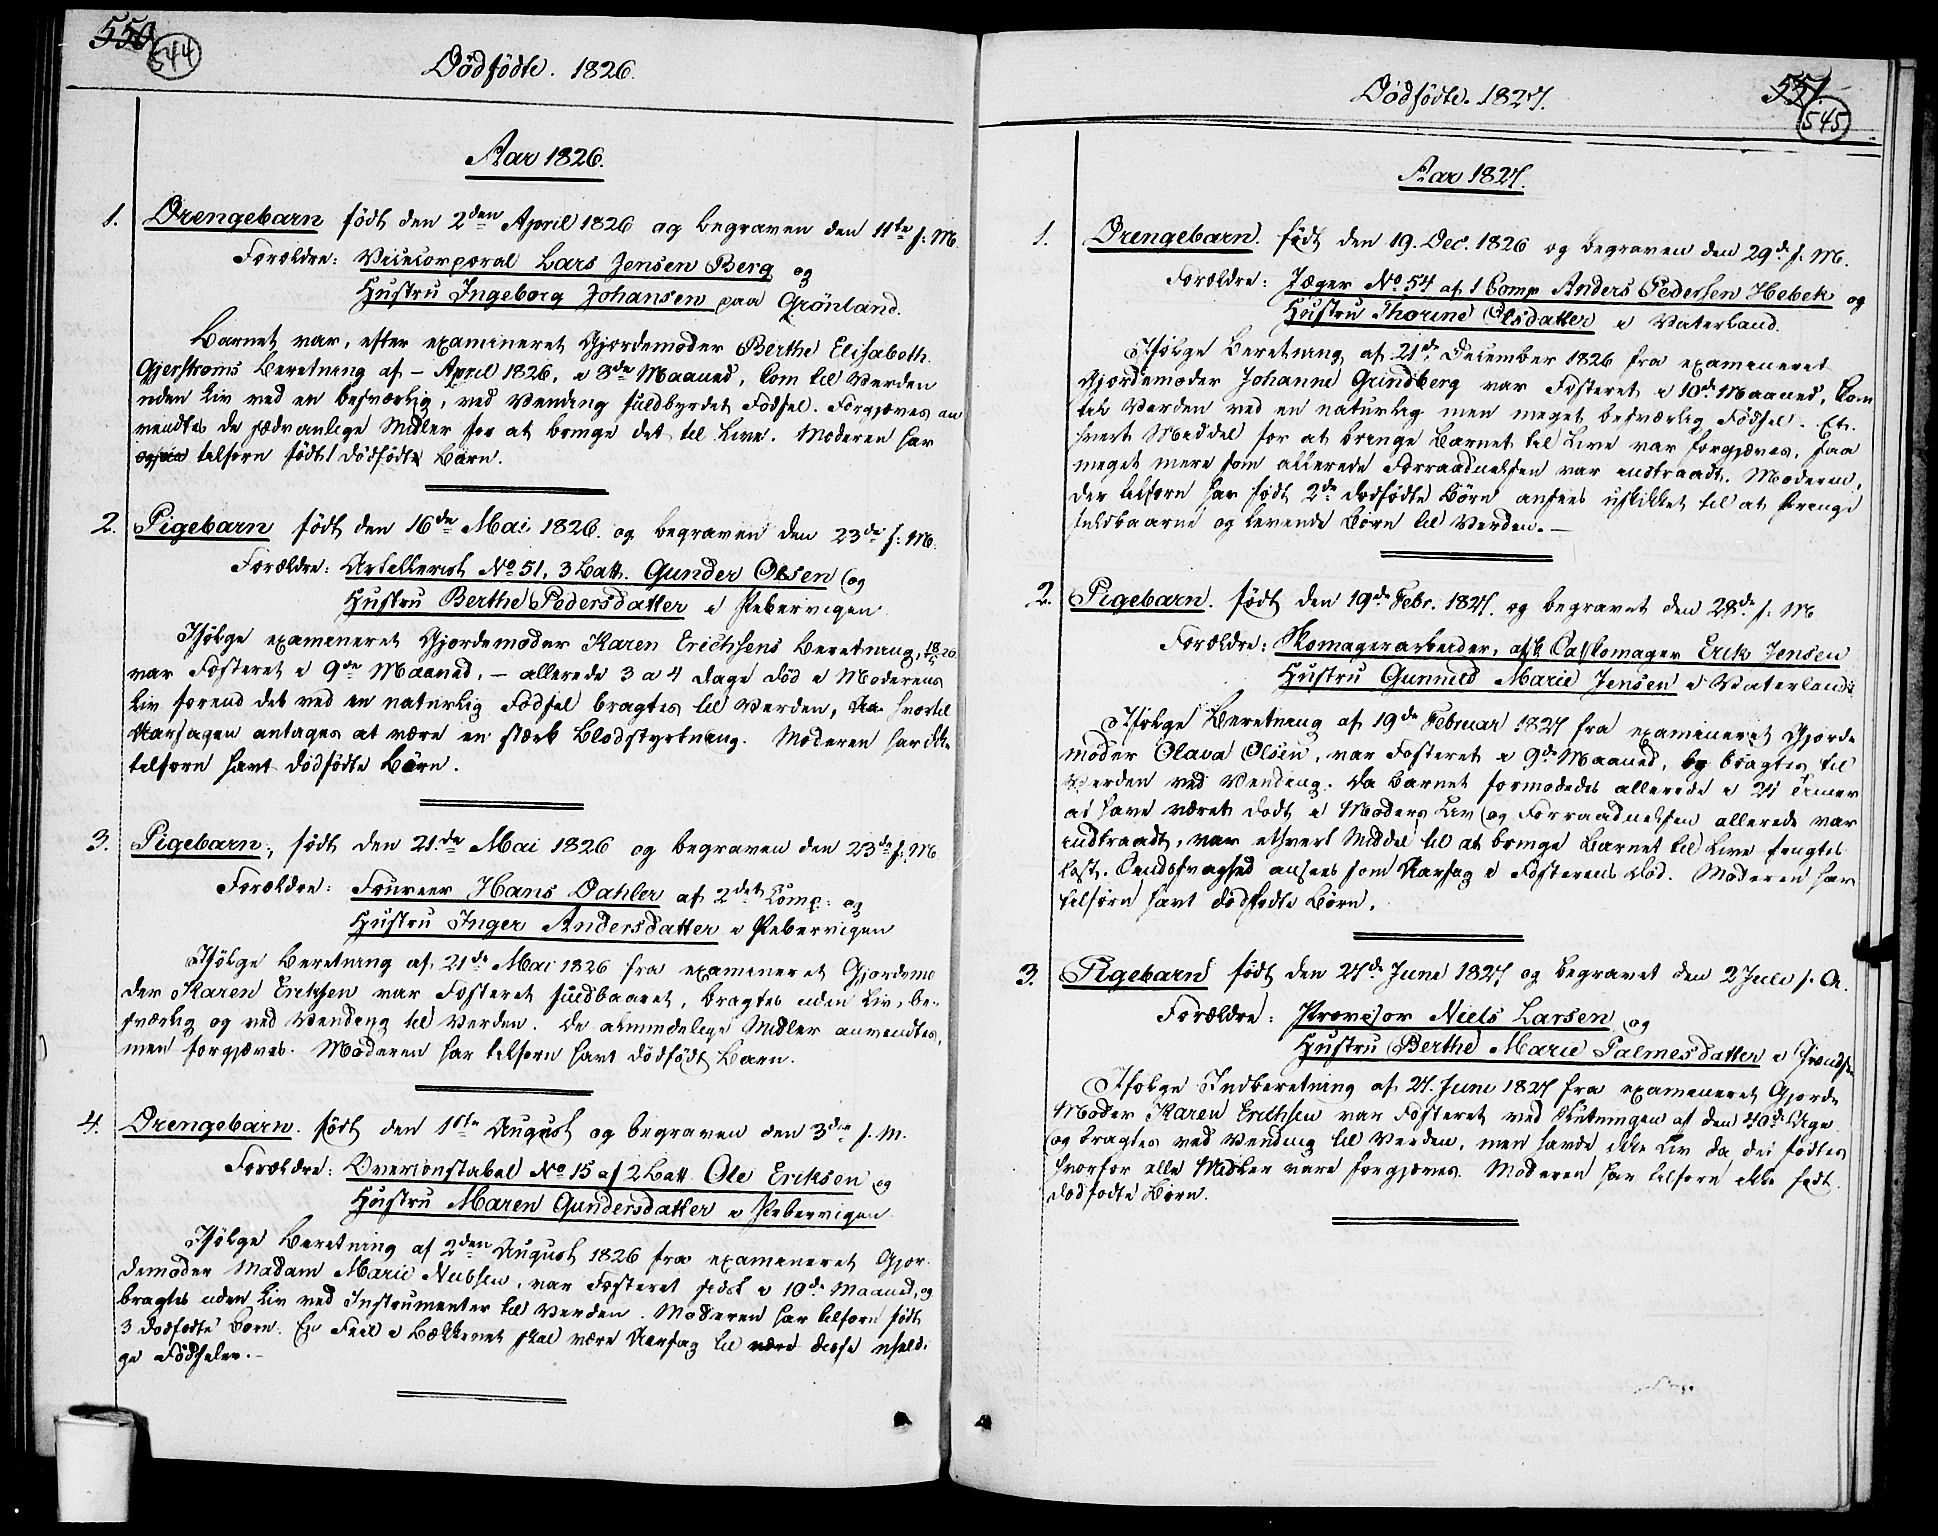 550
544
Dödfödte. 1826.
Aar 1826.
1. Drengebarn födt den 2den April 1826 og begraven den 11te s: M.
Forældre: Vicecorporal Lars Jensen Berg og
Hustru Ingeborg Johansen paa Grönland.
Barnet var, efter examineret Gjordemoder Berthe Elisabeth
Gjerstroms Beretning af – April 1826, i 8de Maaned, kom til Verden
uden Liv ved en besværlig, ved Vending fuldbyrdet Födsel. Forgjæves an
vendtes de sædvanlige Midler for at bringe det til Live. Moderen har
tilforn födt 1 dödfödt Barn.
2. Pigebarn födt den 16de Mai 1826. og begraven den 23de s: M.
Forældre: Artillerist No 51, 3 Batt. Gunder Olsen og
Hustru Berthe Pedersdatter i Pebervigen
Ifölge examineret Gjordemoder Karen Erichsens Beretning, 18/5 26
var Fosteret i 9de Maaned, – allerede 3 a 4 Dage död i Moderens
Liv forend det ved en naturlig Födsel bragtes til Verden, hvortil
Aarsagen antages at være en stærk Blodstyrtning. Moderen har ikke
tilforn havt dödfödte Börn.
3. Pigebarn, födt den 21de Mai 1826 og begraven den 23de s: M.
Forældre: Foureer Hans Dahler af 2det Comp: og
Hustru Inger Andersdatter i Pebervigen
Ifölge Beretning af 21de Mai 1826 fra examineret Gjordemo
der Karen Erichsen var Fosteret fuldbaaret, bragtes uden Liv, be-
sværlig og ved Vending til Verden. De almindelige Midler anvendtes,
men forgjæves. Moderen har tilforn havt dödfödt Barn.
4. Drengebarn. födt den 1ste August og begraven den 3die s. M.
Forældre: Overconstabel No 15 af 2 Batt. Ole Eriksen og
Hustru Maren Gundersdatter i Pebervigen
Ifölge Beretning af 2den August 1826 fra examineret Gjor-
demoder Madam Marie Nielsen, var Fosteret sidst i 10de Maaned, og
bragtes uden Liv ved Instrumenter til Verden. Moderen har tilforn födt
3 dodfodte Born. En Feil i Bækkenet skal være Aarsag til disse uheldi-
ge Födseler.–
551.
545
Dödfödte. 1827.
Aar 1827.
1. Drengebarn. födt den 19. Dec. 1826 og begraven den 29de s. M.
Forældre: Jæger No 54 af 1 Comp Anders Pedersen Hebek og
Hustru Thorine Olsdatter i Vaterland.
Ifölge Beretning af 21de December 1826 fra examineret
Gjordemoder Johanne Grindberg var Fosteret i 10de Maaned, kom
til Verden ved en naturlig men meget besværlig Födsel. Et-
hvert Middel for at bringe Barnet til Live var forgjæves, saa
meget mere som allerede Forraadnelsen var indtraadt. Moderen,
der tilforn har födt 2de dodfödte Börn ansees uskikket til at bringe
fuldbaarne og levende Börn til Verden.–
2. Pigebarn. födt den 19de Febr. 1827. og begravet den 28de s. M
Forældre: Skomagerarbeider, afsk. Erik Jensen
Hustru Gunnild Marie Jensen i Vaterland
Ifölge Beretning af 19de Februar 1827 fra examineret Gjorde
moder Olava Olsen, var Fosteret i 9de Maaned, bragtes til
Verden ved Vending. Da Barnet formodedes allerede i 24 Timer
at have været dodt i Moders Liv og Forraadnelsen allerede var
indtraadt, var ethvert Middel til at bringe Barnet til Live frugtes
löst. Aarsag i Fosterens Död. Moderen har
tilforn havt dödfödte Börn.
3. Pigebarn födt den 27de Juni 1827 og begravet den 2 Juli s. A.
Forældre: Provisor Niels Larsen og
Hustru Berthe Marie Palmesdatter i
Ifolge Indberetning af 27. Juni 1827 fra examineret Gjorde
Moder Karen Erichsen var Fosteret ved Slutningen af den 40de Uge
og bragtes ved Vending til Verden, men havde ikke Liv da det födtes
hvorfor alle Midler vare forgjæves. Moderen har tilforn ikke födt
dodfodte Börn.